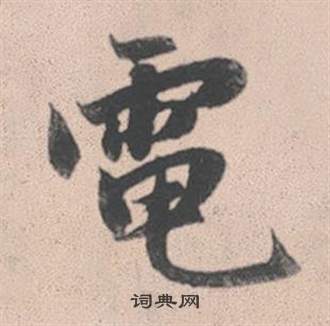 電
词典网